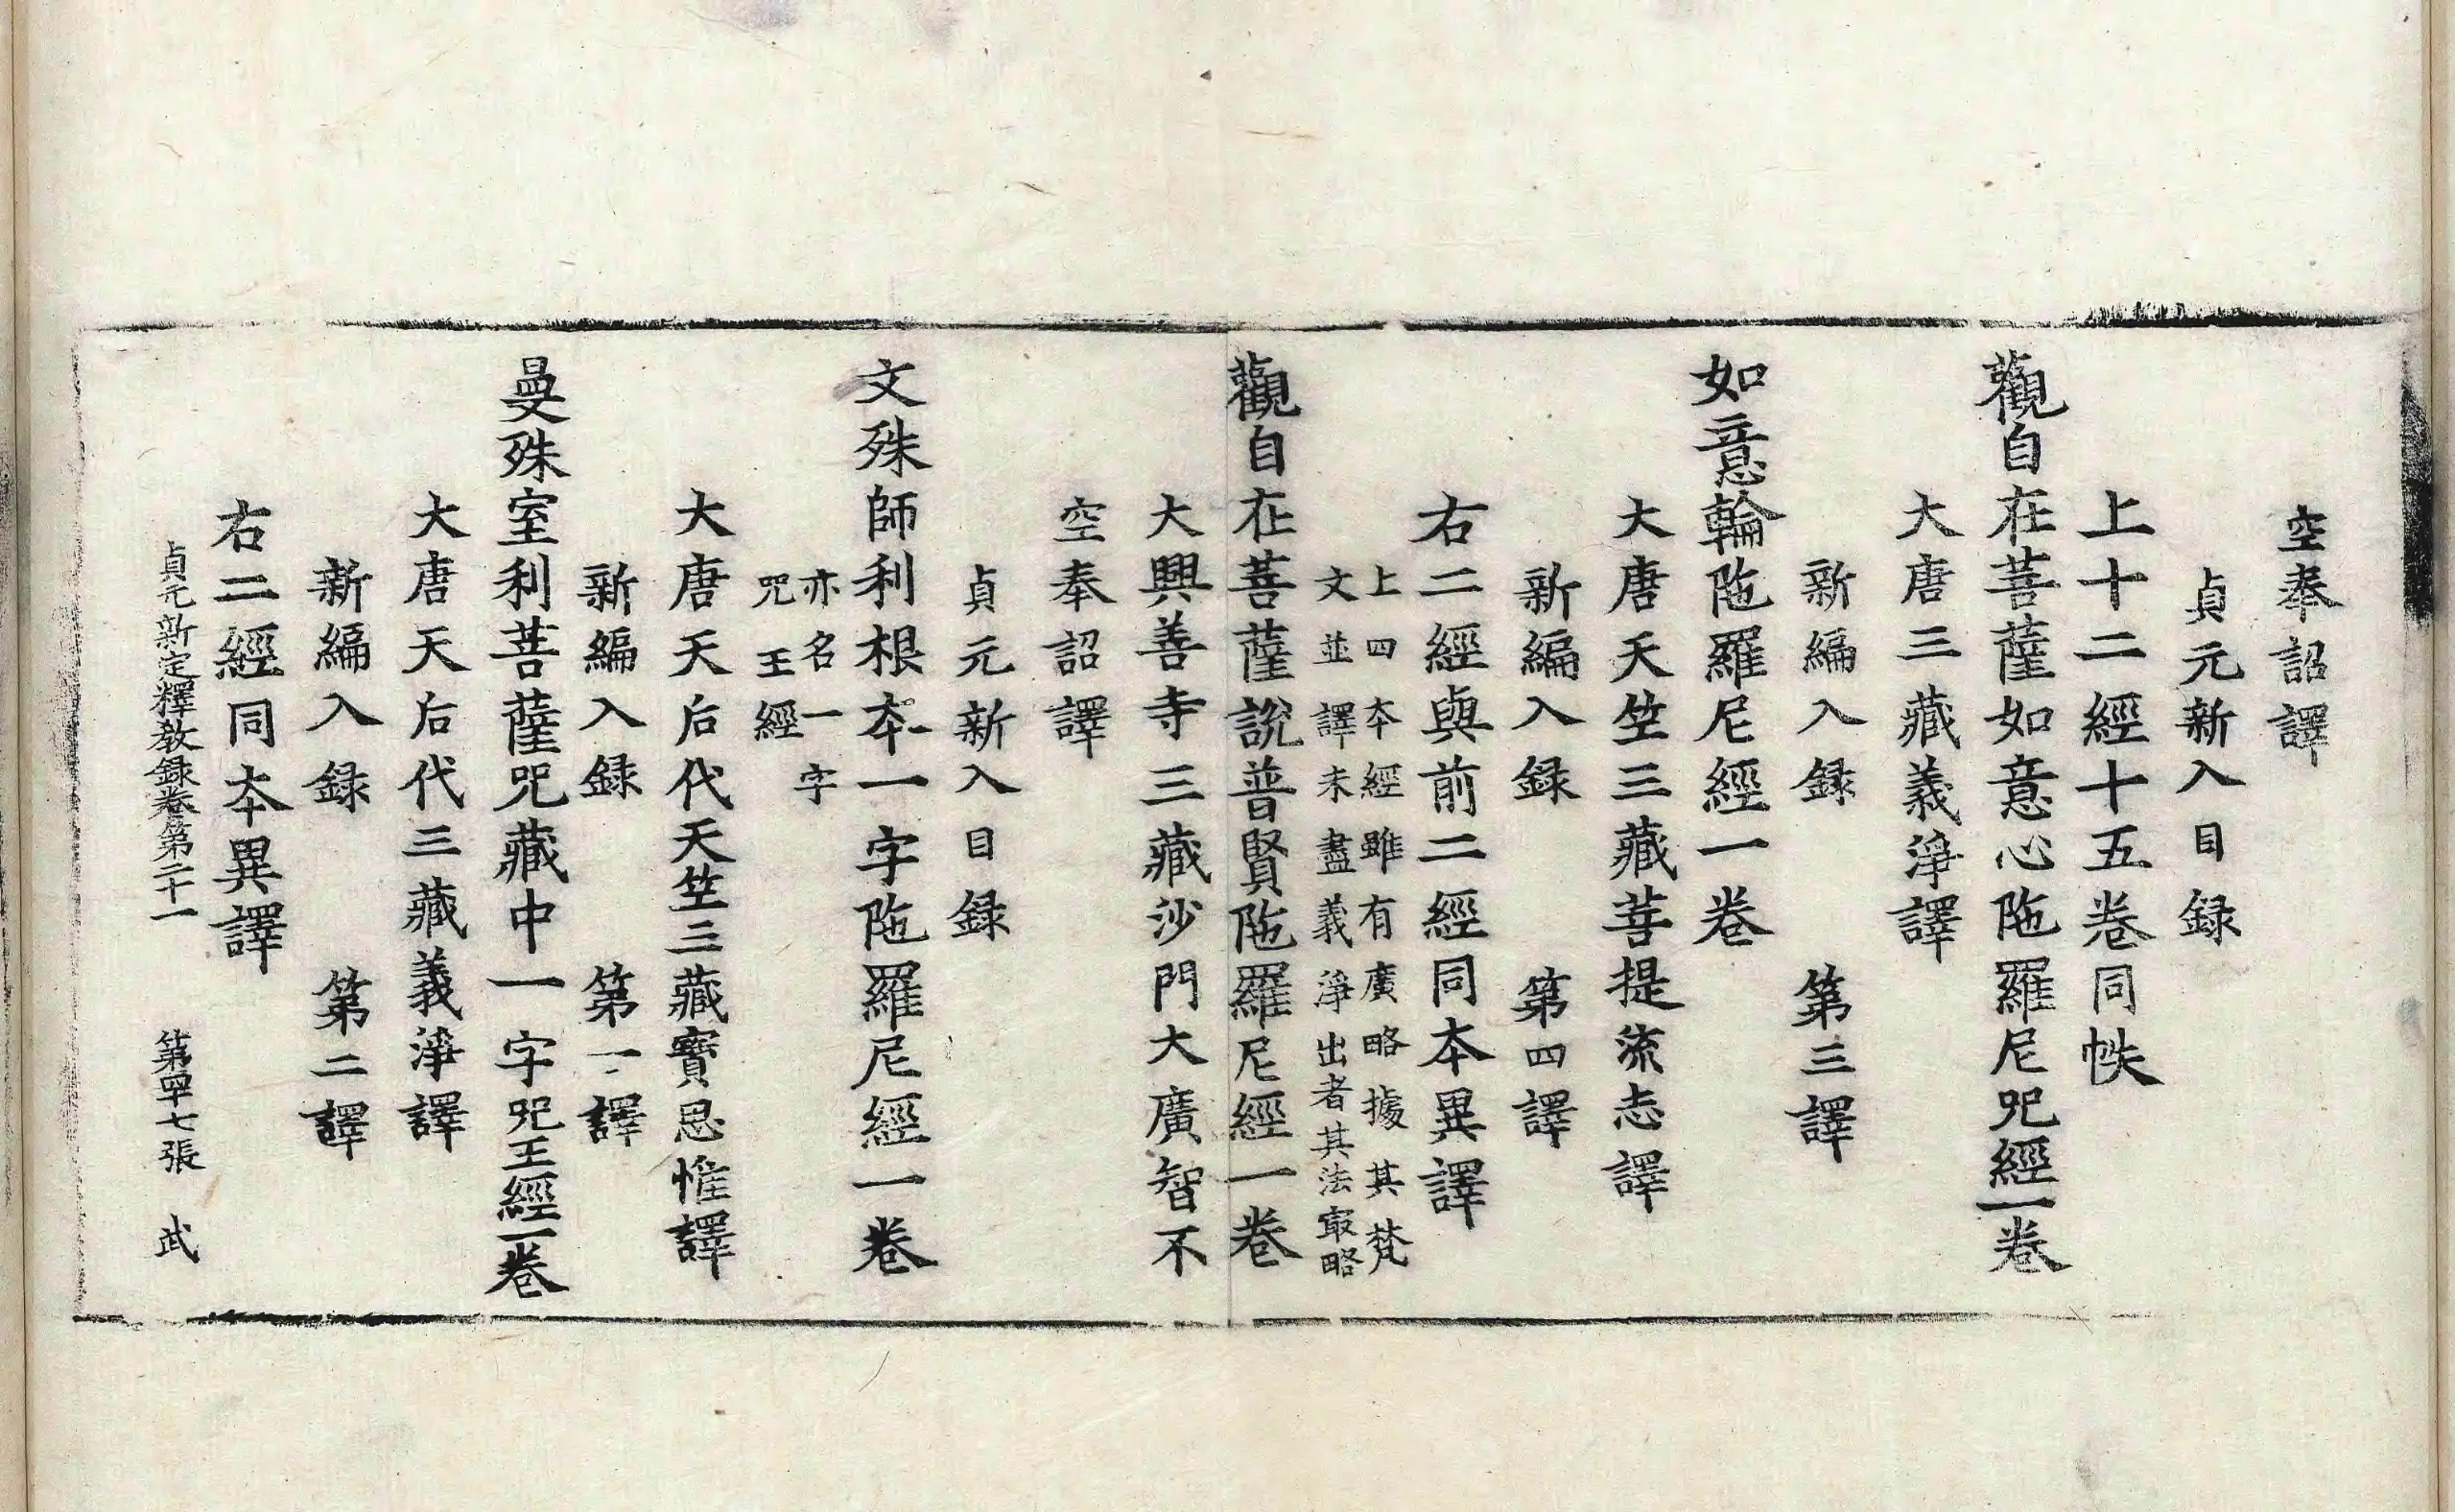 空奉詔譯
貞元新入目録
上十二經十五卷同帙
觀自在菩薩如意心陁羅尼呪經一卷
大唐三藏義淨譯
新編入録　第三譯
如意輪陁羅尼經一卷
大唐天竺三藏菩提流志譯
新編入録　第四譯
右二經與前二經同本異譯
上四本經雖有廣略據其梵
文並譯未盡義淨出者其法㝡略
觀自在菩薩說普賢陁羅尼經一卷
大興善寺三藏沙門大廣智不
空奉詔譯
貞元新入目録
文殊師利根本一字陁羅尼經一卷
亦名一字
呪王經
大唐天后代天竺三藏寶思惟譯
新編入録　第一譯
曼殊室利菩薩呪藏中一字呪王經一卷
大唐天后代三藏義淨譯
新編入録　第二譯
右二經同本異譯
貞元新定釋教錄卷第二十一　第四十七張　武